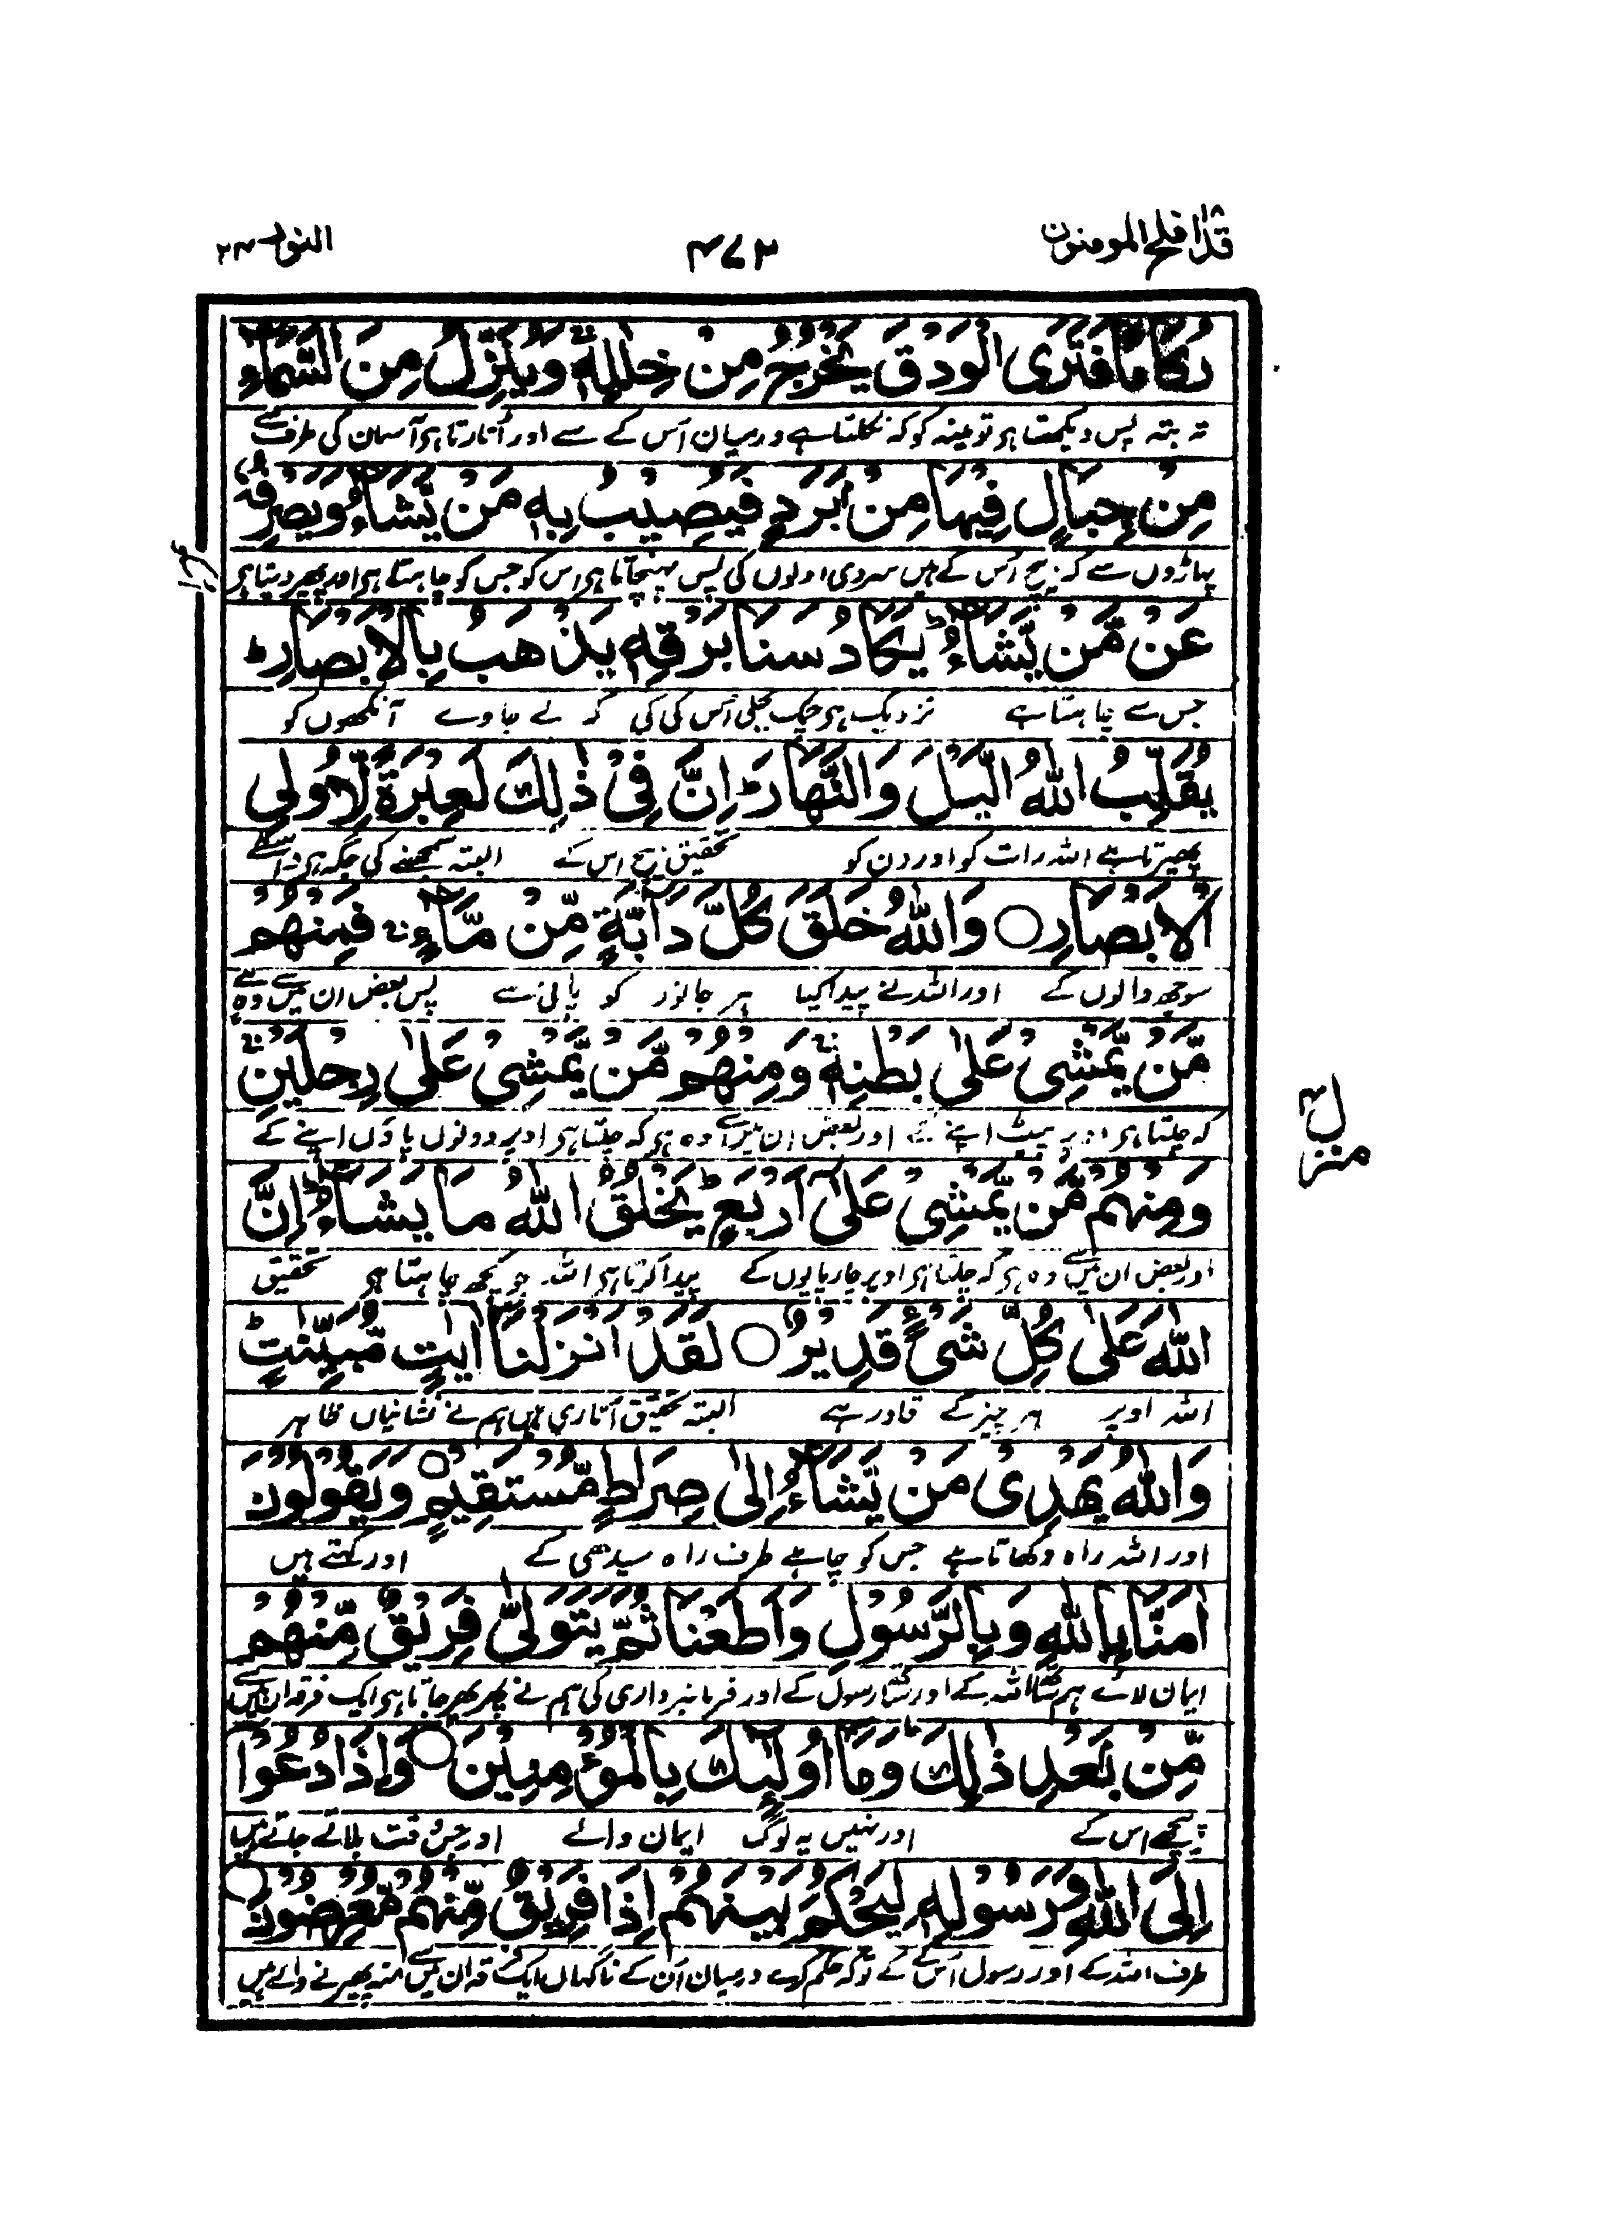 قد افلح المومنون ۴۷۲ النور ۲۴
رُكَامًا فَتَرَى الْوَدْقَ يَخْرُجُ مِنْ خِلٰلِهٖ ۚ وَيُنَزِّلُ مِنَ السَّمَآءِ
تہ بتہ پس دیکھتا ہی تو مینہ کو کہ نکلتا ہے درمیان اُس کے سے اور اُتارتا ہی آسمان کی طرف سے
مِنْ جِبَالٍ فِيْهَا مِنْۢ بَرَدٍ فَيُصِيْبُ بِهٖ مَنْ يَّشَآءُ وَيَصْرِفُهٗ
پہاڑوں سے کہ بیچ اُس کے ہیں سردی اولوں کی پس پہنچاتا ہی اس کو جس کو چاہتا ہی اور پھیر دیتا ہی
عَنْ مَّنْ يَّشَآءُ ؕ يَكَادُ سَنَا بَرْقِهٖ يَذْهَبُ بِالْاَبْصَارِ ؕ
جس سے چاہتا ہے نزدیک ہی چمک بجلی اُس کی کی کہ لے جاوے آنکھوں کو
يُقَلِّبُ اللّٰهُ الَّيْلَ وَالنَّهَارَ ؕ اِنَّ فِيْ ذٰلِكَ لَعِبْرَةً لِّاُولِي
پھیرتا ہے اللہ رات کو اور دن کو تحقیق بیچ اس کے البتہ سمجھنے کی جگہ ہی واسطے
الْاَبْصَارِ ○ وَاللّٰهُ خَلَقَ كُلَّ دَآبَّةٍ مِّنْ مَّآءٍ ۚ فَمِنْهُمْ
سوجھ والوں کے اور اللہ نے پیدا کیا ہر جانور کو پانی سے پس بعض ان میں سے وہ ہے
مَّنْ يَّمْشِيْ عَلٰى بَطْنِهٖ ۚ وَمِنْهُمْ مَّنْ يَّمْشِيْ عَلٰى رِجْلَيْنِ ۚ
کہ چلتا ہی اوپر پیٹ اپنے کے اور بعض ان میں سے وہ ہی کہ چلتا ہی اوپر دونوں پاؤں اپنے کے
وَمِنْهُمْ مَّنْ يَّمْشِيْ عَلٰٓى اَرْبَعٍ ؕ يَخْلُقُ اللّٰهُ مَا يَشَآءُ ؕ اِنَّ
اور بعض ان میں سے وہ ہی کہ چلتا ہی اوپر چار پایوں کے پیدا کرتا ہی اللہ جو کچھ چاہتا ہی تحقیق
اللّٰهَ عَلٰى كُلِّ شَيْءٍ قَدِيْرٌ ○ لَقَدْ اَنْزَلْنَآ اٰيٰتٍ مُّبَيِّنٰتٍ ؕ
اللہ اوپر ہر چیز کے قادر ہے البتہ تحقیق اُتاری ہیں ہم نے نشانیاں ظاہر
وَاللّٰهُ يَهْدِيْ مَنْ يَّشَآءُ اِلٰى صِرَاطٍ مُّسْتَقِيْمٍ ○ وَيَقُوْلُوْنَ
اور اللہ راہ دکھاتا ہے جس کو چاہے طرف راہ سیدھی کے اور کہتے ہیں
اٰمَنَّا بِاللّٰهِ وَبِالرَّسُوْلِ وَاَطَعْنَا ثُمَّ يَتَوَلّٰى فَرِيْقٌ مِّنْهُمْ
ایمان لائے ہم ساتھ اللہ کے اور ساتھ رسول کے اور فرمانبرداری کی ہم نے پھر پھر جاتا ہی ایک فرقہ ان میں سے
مِّنْۢ بَعْدِ ذٰلِكَ ؕ وَمَآ اُولٰٓئِكَ بِالْمُؤْمِنِيْنَ ○ وَاِذَا دُعُوْٓا
پیچھے اس کے اور نہیں یہ لوگ ایمان والے اور جس وقت بلائے جاتے ہیں
اِلَى اللّٰهِ وَرَسُوْلِهٖ لِيَحْكُمَ بَيْنَهُمْ اِذَا فَرِيْقٌ مِّنْهُمْ مُّعْرِضُوْنَ ○
طرف اللہ کے اور رسول اُس کے کے تو کہ حکم کرے درمیان اُن کے ناگہاں ایک فرقہ ان میں سے منہ پھیرنے والے ہیں
منزل ۴